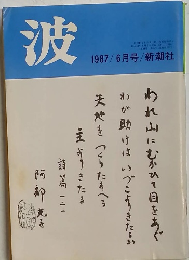 波
1987/6月号/新潮社
われ山にむかひて目をあぐ
わが助けはいづこよりきたるか
天地をつくりたまへる
主よりきたる
詩篇一二一
阿部光子